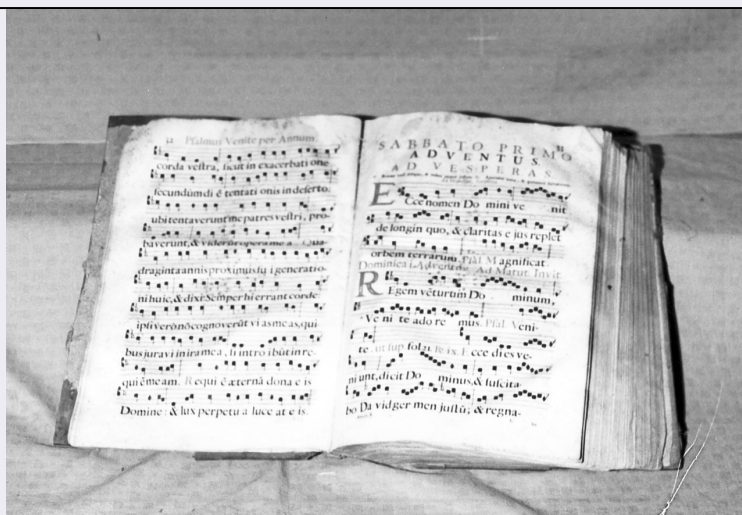 Psalmus Venite per Annum.
corda vestra, sicut in exacerbati one
secundum di ē tentati onis in deserto.
ubi tentaverunt me patres vestri, pro-
baverunt, & viderūt opera me a. Qua-
draginta annis proximus fu i generatio-
ni huic, & dixi: Semper hi errant corde
ipsi verò nō cognoverūt vi as meas, qui-
bus juravi in ira mea, si intro ibūt in re-
qui ē meam. Requi ē æternā dona e is
Domine: & lux perpetu a luce at e is.
SABBATO PRIMO
ADVENTUS.
AD VESPERAS.
Ecce nomen Do mini ve nit
de longin quo, & claritas e jus replet
orbem terrarum. Psal. Magnificat.
Dominica i. Adventus. Ad Matut. Invit.
Regem vēturum Do minum,
Ve ni te ado re mus. Psal. Veni-
te. ut sup. fol. 21. Ecce di es ve-
ni unt, dicit Do minus, & suscita-
bo Da vid ger men justū; & regna-